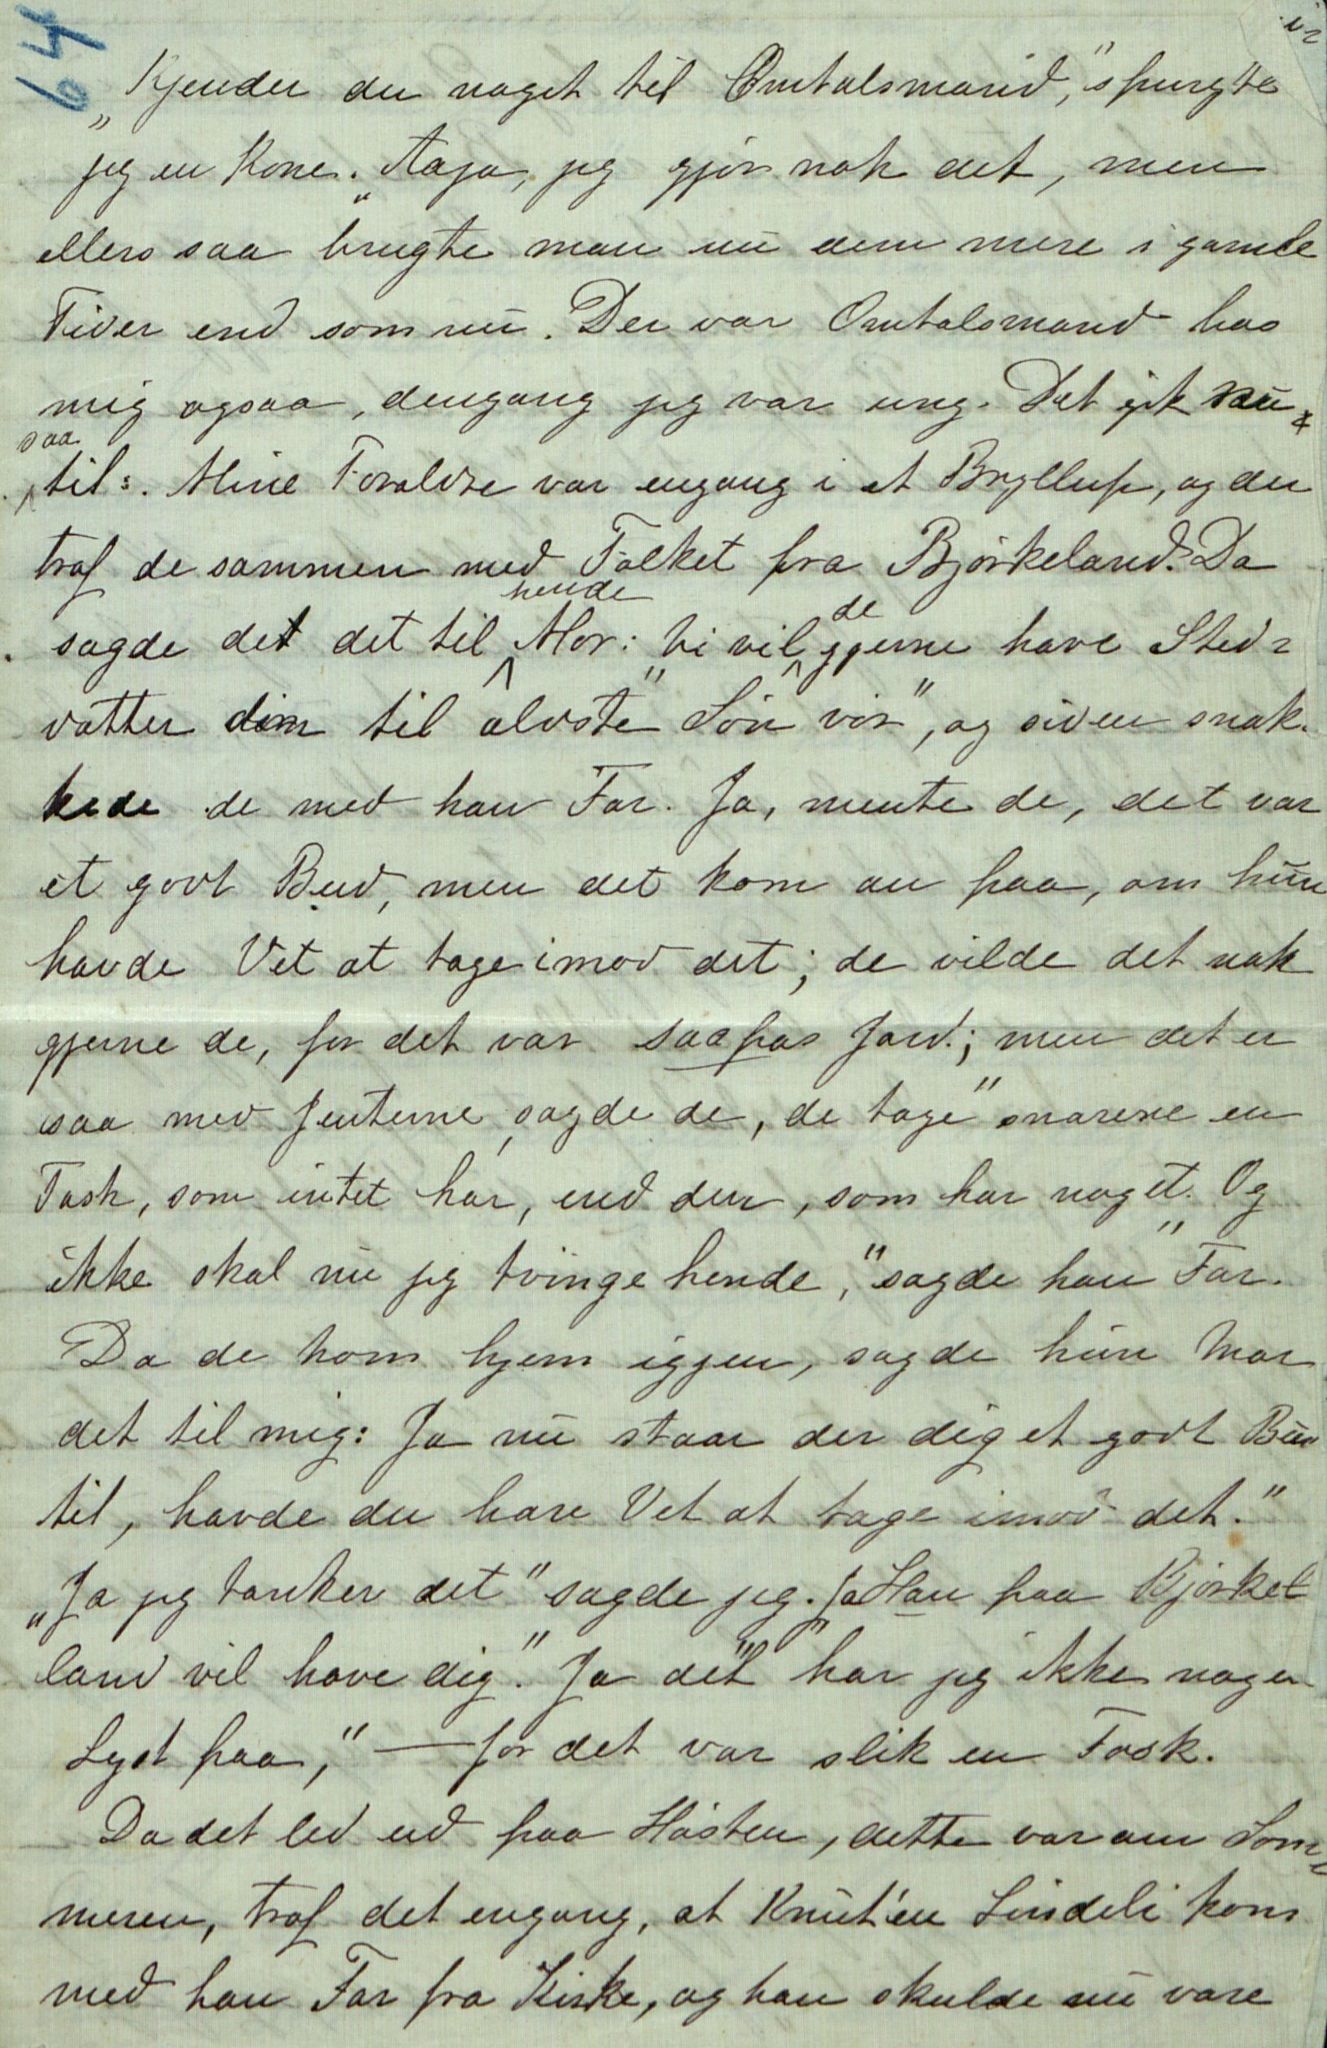 64
„Kjender du noget til Omtalsmænd," spurgte
jeg en Kone. „Aaja, jeg gjør nok det, men
ellers saa brugte man nu dem mere i gamle
Tider end som nu. Der var Omtalsmænd hos
mig ogsaa, dengang jeg var ung. Det gik nu
saa
til:. Mine Foraldre var engang i et Bryllup, og der
traf de sammen med Folket fra Bjørkeland. Da
hende de
sagde det det til Mor: „Vi vil gjerne have Sted-
datter din til ældste Søn vor", og siden snak-
kede de med han Far. Ja, mente de, det var
et godt Bud, men det kom an paa, om hun
havde Vet at tage imod det; de vilde det nok
gjerne de, for det var saapas Jord; men det er
saa med Jenterne, sagde de, de tage" snarere en
Task, som intet har, end den, som har noget. Og
ikke skal nu jeg tvinge hende," sagde han Far.
Da de kom hjem iggjen, sagde hun Mor
det til mig: Ja nu staar der dig et godt Bud
til, havde du bare Vet at tage imod det."
„Ja jeg tænker det" sagde jeg. „Ja Han paa Bjørke-
land vil have dig." „Ja det har jeg ikke nogen
Lyst paa," — for det var slik en Fosk.
Da det led ud paa Høsten, dette var om Som-
meren, traf det engang, at Knut'en Lindeli kom
med han Far fra Kirke, og han skulde nu være